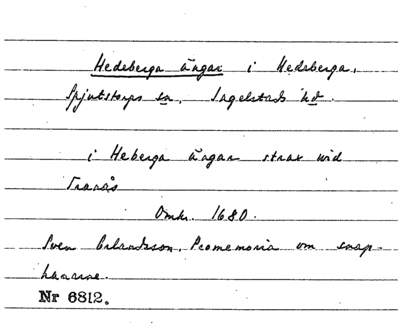 Hedeberga ängar i Hedeberga,
Spjutstorps sn, Ingelstads hd.
i Heberga ängar strax wid
Tranås
Omkr. 1680.
Sven Erlandsson, Promemoria om snap-
hanarne.
Nr 6812.